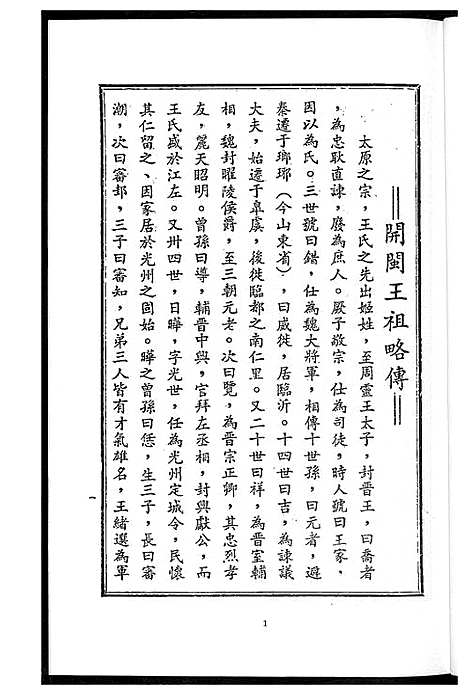 ══開閩王祖略傳══
太原之宗，王氏之先出姬姓，至周靈王太子，封晉王，曰喬者
，為忠耿直諫，廢為庶人。厥子敬宗，仕為司徒，時人號曰王家，
因以為氏。三世號曰錯，仕為魏大將軍，相傳十世孫，曰元者，避
秦遷于瑯琊（今山東省），曰威徙，居臨沂。十四世曰吉，為諫議
大夫，始遷于皐虞，後徙臨都之南仁里。又二十世曰祥，為晉室輔
相，魏封曜陵侯爵，至三朝元老。次曰覽，為晉宗正卿，其忠烈孝
友，麗天昭明。曾孫曰導，輔晉中興，官拜左丞相，封興獻公，而
王氏盛於江左。又卅四世，日曄，字光世，任為光州定城令，民懷
其仁留之、因家居於光州之固始。曄之曾孫曰恁，生三子，長曰審
潮，次曰審邽，三子曰審知，兄弟三人皆有才氣雄名，王緒選為軍
一
1